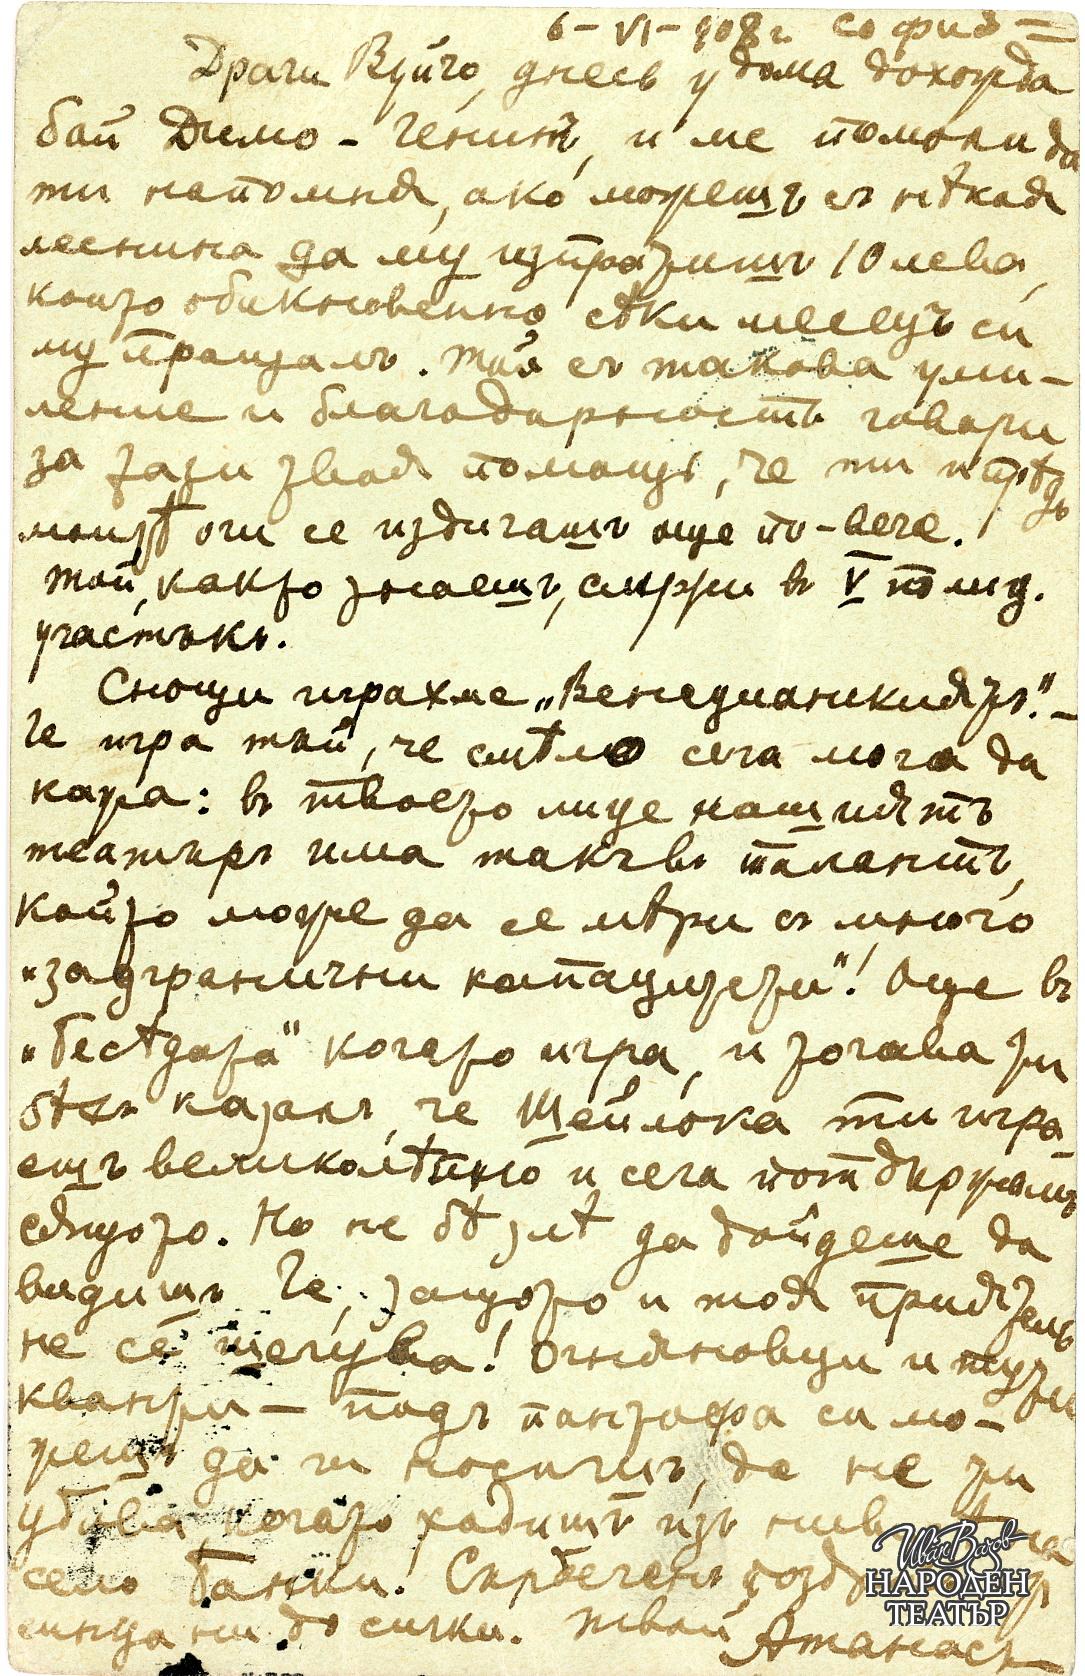 6 – VI – 908 г. София =
Драги Вуйчо, днесь у дома дохожда
бай Димо – Гениятъ, и ме помоли да
ти напомня, ако можешъ съ нѣкая
леснина да му изпратишъ 10 лева,
които обикновенно сѣки месецъ си
му пращалъ. Той съ такова уми-
ление и благодарность говори
за тази твоя помощь, че ти и прѣдъ
моитѣ очи се издигашъ още по-вече.
Той, както знаешъ, служи въ V полиц.
участъкъ.
Снощи играхме „Венецианкиятъ." –
Ге игра тъй, че смѣло сега мога да
кажа: въ твоето лице нашиятъ
театъръ има такъвъ талантъ,
който може да се мѣри съ много
„задгранични капацитети"! Още въ
„Бесѣдата" когато игра, и тогава ти
бѣхъ казалъ, че Шейлока ти игра-
ешъ великолѣпно и сега потдържамъ
сѫщото. Но не бѣ злѣ да дойдеше да
видишъ Ге, защото и тоя приятель
не се шегува! Огняновци и тути
кванти – подъ пантофа си мо-
жешъ да ги носишъ, да не ти
убива, когато ходишъ изъ
село Банки! Сърдеченъ
ни до сички. Твой Атанасъ
Иван Вазов
НАРОДЕН
ТЕАТЪР